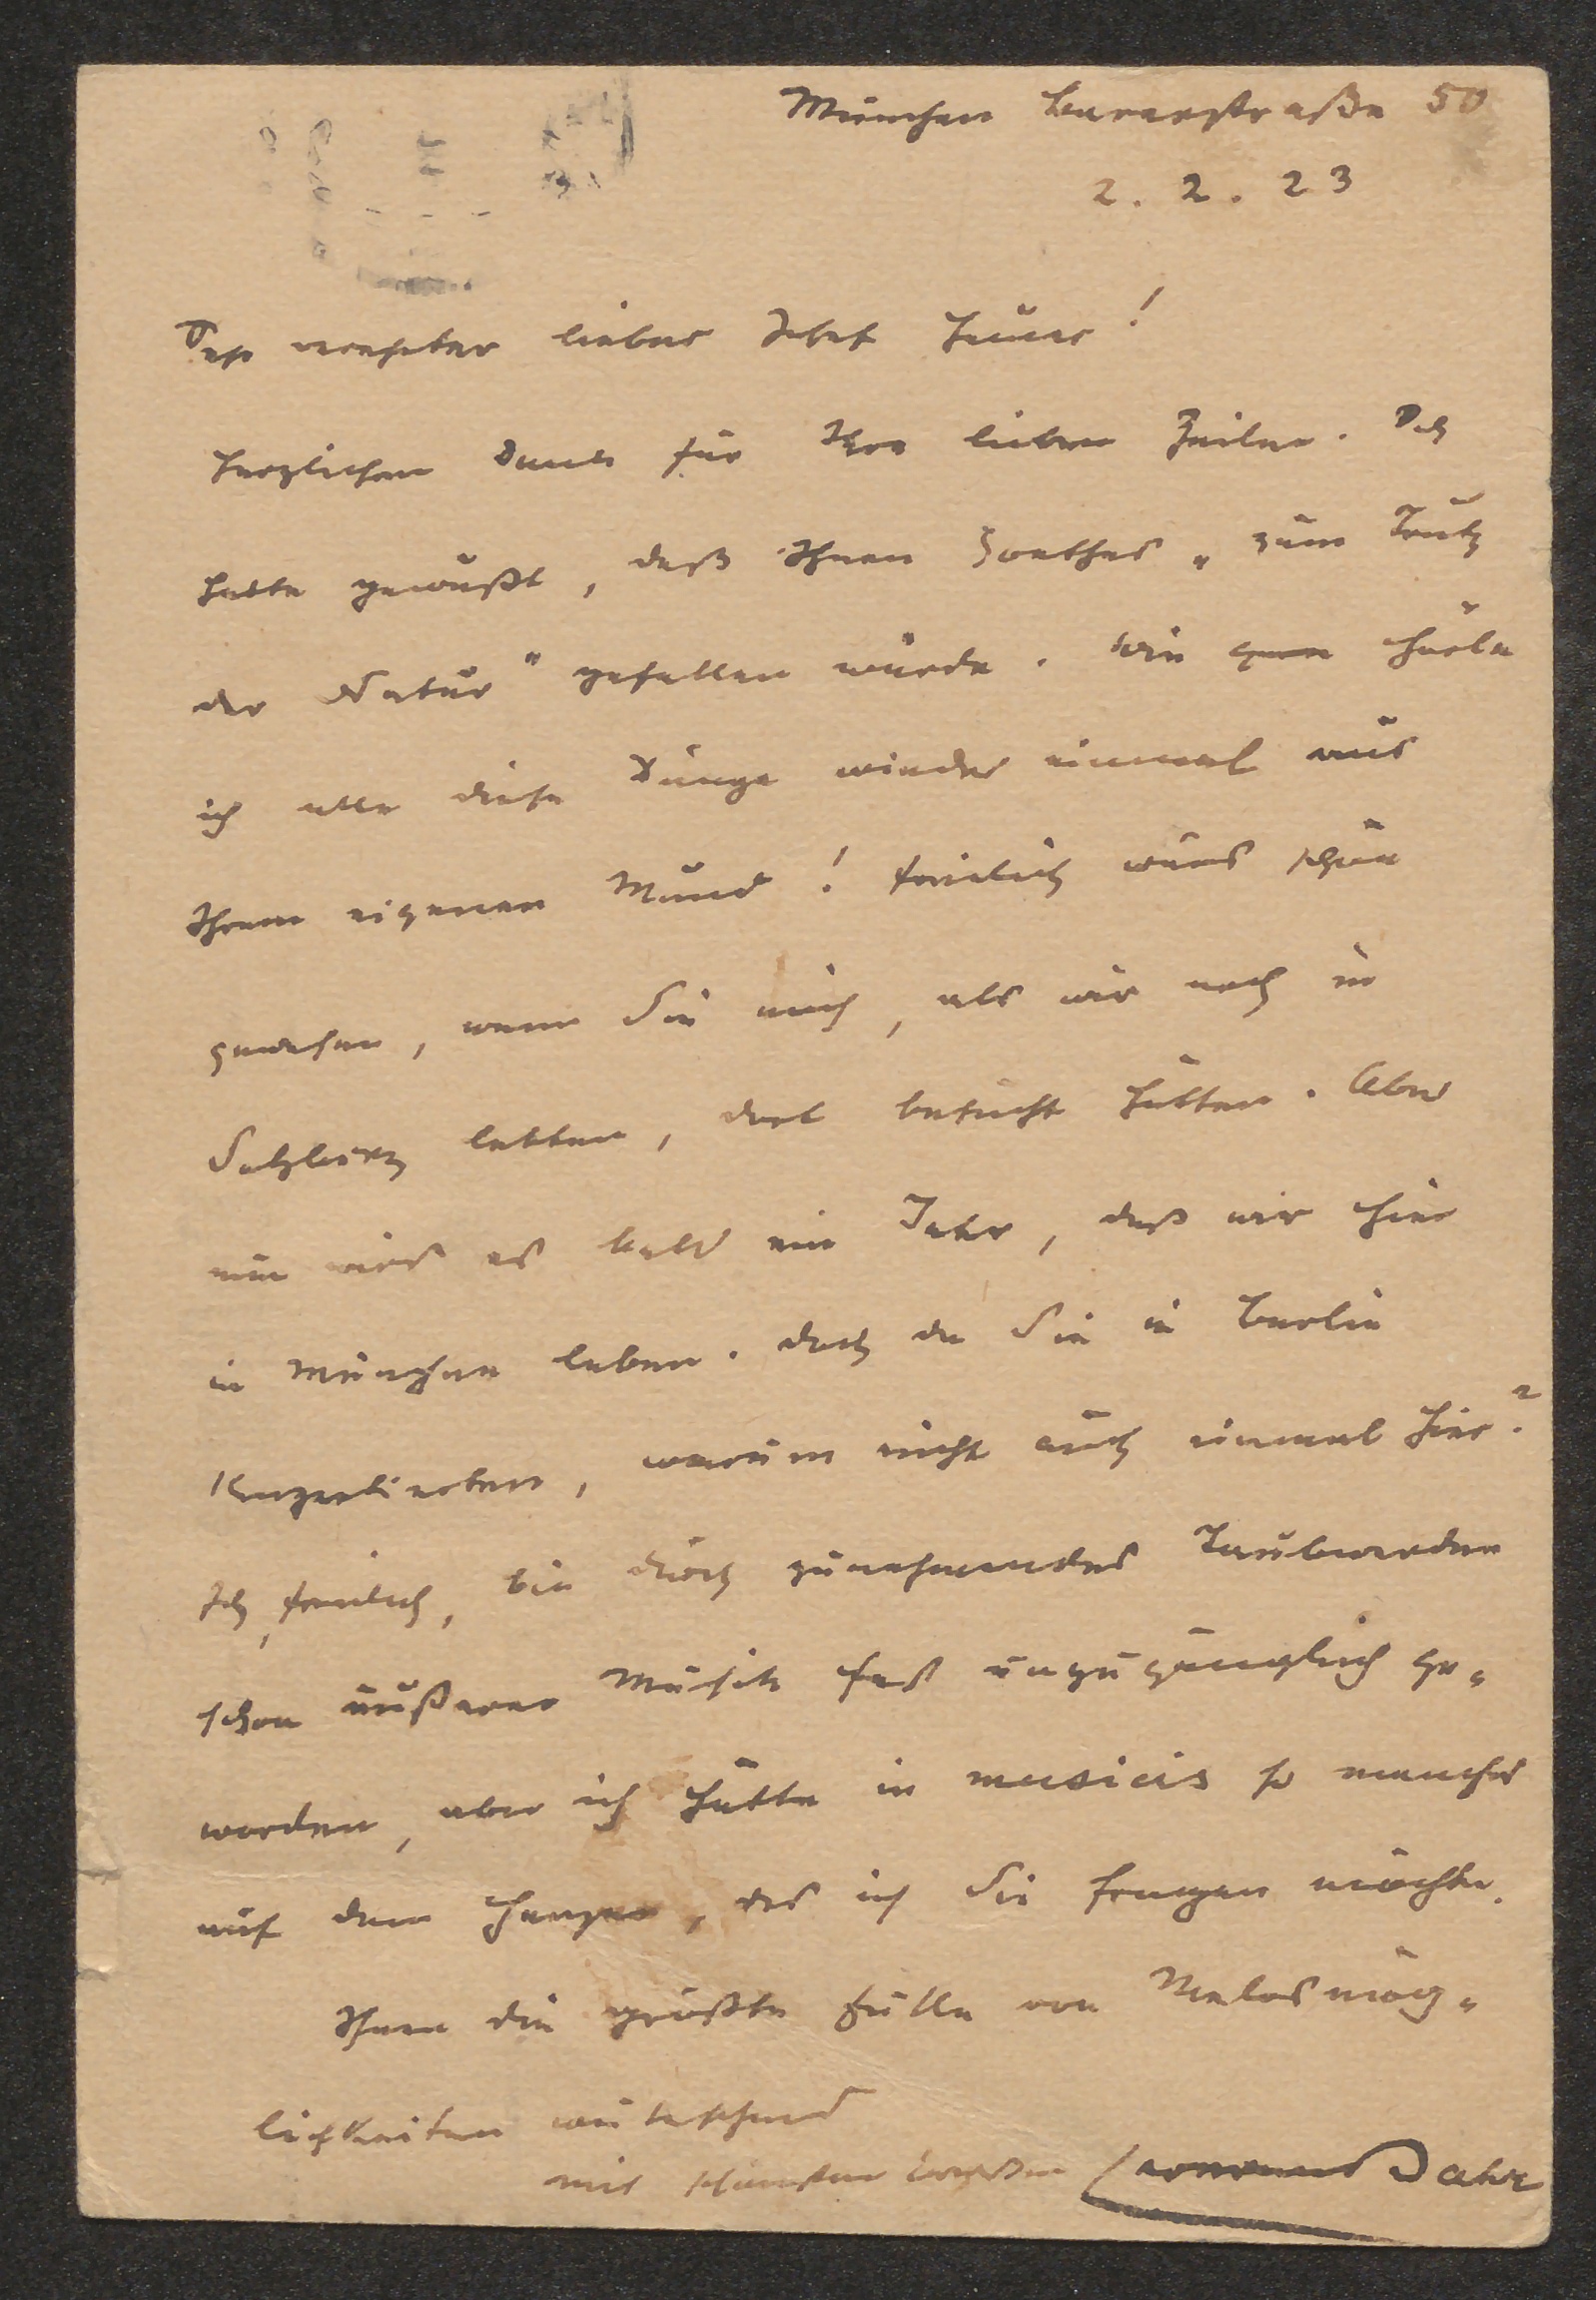 München Barerstraße 50
2. 2. 23
Sehr verehrter lieber Josef Hauer!
Herzlichen Dank für Ihre lieben Zeilen. Ich
hatte gewußt, daß Ihnen Goethes „zum Trutz
der Natur" gefallen würde. Wie gern hörte
ich alle diese Dinge wieder einmal aus
Ihrem eigenen Mund! Freilich wärs schön
gewesen, wenn Sie mich, als wir noch in
Salzburg lebten, dort besucht hätten. Aber
nun wird es bald ein Jahr, daß wir hier
in München leben. Doch da Sie in Berlin
konzertierten, warum nicht auch einmal hier?
Ich, freilich, bin durch zunehmendes Taubwerden
schon äußerer Musik fast unzugänglich ge-
worden, aber ich hätte in musicis so manches
auf dem Herzen, das ich Sie fragen möchte.
Ihnen die größte Fülle von Melosmög-
lichkeiten wünschend
mit schönsten Grüßen Hermann Bahr